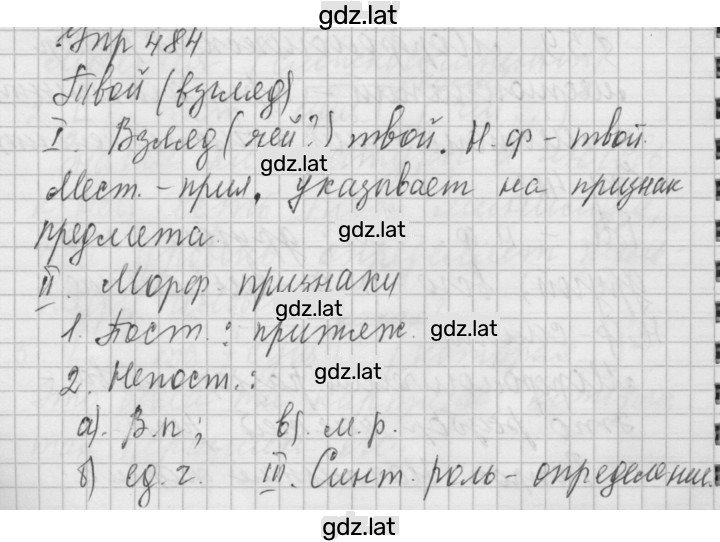 gdz.lat
Упр 484
Твой (взгляд)
I. Взгляд (чей?) твой. Н.ф - твой.
gdz.lat
Мест. - прил, указывает на признак
предмета gdz.lat
II. Морф. признаки
gdz.lat
1. Пост.: притяж. gdz.lat
2. Непост.: gdz.lat
а). В.п; в). м.р.
б) ед.ч. III. Синт. роль - определение.
gdz.lat